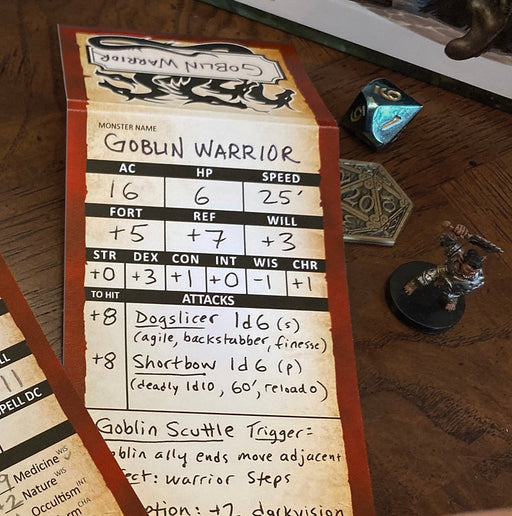 GOBLIN WARRIOR
MONSTER NAME
GOBLIN WARRIOR
AC HP SPEED
16 6 25'
FORT REF WILL
+5 +7 +3
STR DEX CON INT WIS CHR
+0 +3 +1 +0 -1 +1
TO HIT ATTACKS
+8 Dogslicer 1d6 (s)
(agile, backstabber, finesse)
+8 Shortbow 1d6 (p)
(deadly 1d10, 60', reload 0)
Goblin Scuttle Trigger=
ally ends move adjacent
warrior Steps
+2, darkvision
11
SPELL DC
9 Medicine WIS
+2 Nature WIS
Occultism INT
CHA
6